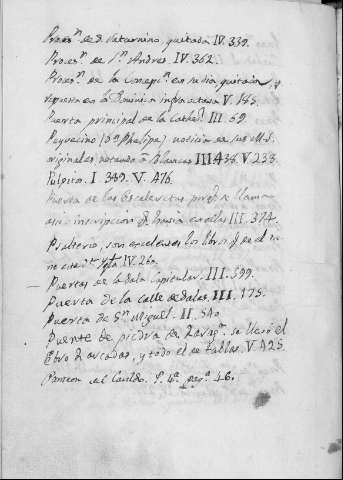 Proces.ⁿ de S. Saturnino, quitada IV. 339.
Proces.ⁿ de S.ⁿ Andres. IV. 362.
Proces.ⁿ de la Concep.ⁿ en su dia quitada, y
repuesta en la Dominica infraoctava V. 183.
Puerta principal de la Cathed.ˡ III. 69.
Puyvecino (Dⁿ Phelipe) noticia de sus M.S.
originales notando a Blancas III 438. V. 233.
Pulpitos. I. 389. V. 476.
Puerta de las Escaleretas porq.e se llama
asi: inscripcion q.e havia en ellas III. 374.
Psalterio, son excelentes los libros q.e
esta Ygl.ª IV. 260.
Puertas de la Sala Capitular. III. 599.
Puerta de la calle de Palas. III. 175.
Puerta de Sⁿ Miguel. II. 540.
Puente de piedra de Zarag.ª se llevó el
Ebro 2 arcadas, y todo el de tablas. V. 425.
Panteon del Cavildo. T. 4.º pag.ª 46.